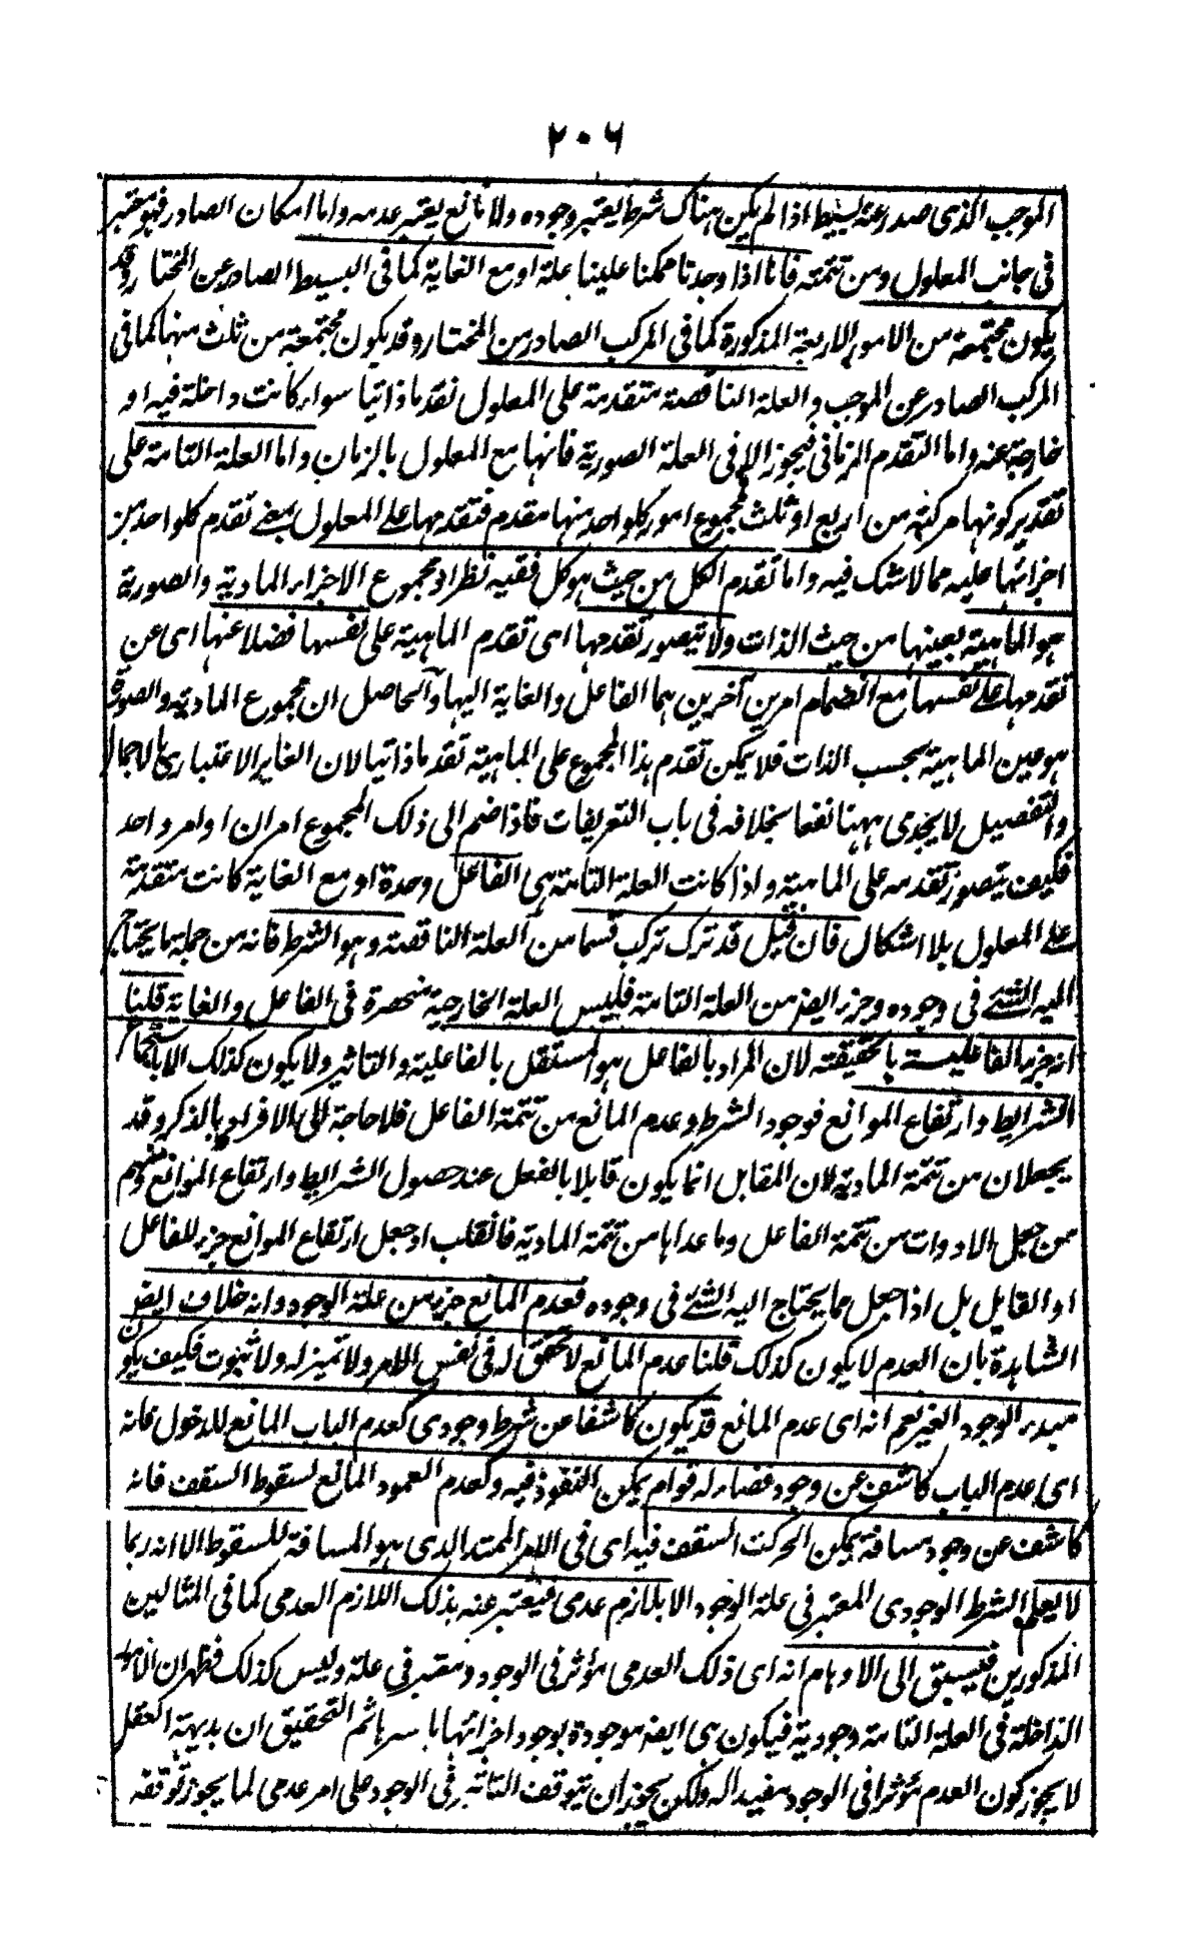 ٢٠٦
الموجب الذى صدر عنه بسيط اذا لم يكن هناك شرط يعتبر وجوده ولا مانع يعتبر عدمه واما امكان الصادر فهو معتبر
فى جانب المعلول ومن تتمته فانا اذا وجدنا ممكنا طلبنا علة او مع الغاية كما فى البسيط الصادر عن المختار وقد
يكون مجتمعة من الامور الاربعة المذكورة كما فى المركب الصادر من المختار وقد يكون مجتمعة من ثلث منها كما فى
المركب الصادر عن الموجب والعلة الناقصة متقدمة على المعلول تقدما ذاتيا سواء كانت داخلة فيه او
خارجة عنه واما التقدم الزمانى فيجوز الا فى العلة الصورية فانها مع المعلول بالزمان واما العلة التامة على
تقدير كونها مركبة من اربع او ثلث مجموع امور كلواحد منها مقدم فتقدمها على المعلول بمعنے تقدم كلواحد من
اجزائها عليه مما لا شك فيه واما تقدم الكل من حيث هو كل ففيه نظر اذ مجموع الاجزاء المادية والصورية
هو الماهية بعينها من حيث الذات ولا يتصور تقدمها اى تقدم الماهية على نفسها فضلا عنها اى عن
تقدمها على نفسها مع انضمام امرين آخرين هما الفاعل والغاية اليها والحاصل ان مجموع المادية والصورة
هو عين الماهية بحسب الذات فلا يمكن تقدم هذا المجموع على الماهية تقدما ذاتيا لان التغاير الاعتبارى بالاجمال
والتفصيل لا يجدى ههنا نفعا بخلافه فى باب التعريفات فاذا ضم الى ذلك المجموع امران او امر واحد
فكيف يتصور تقدمه على الماهية واذا كانت العلة التامة هى الفاعل وحدة او مع الغاية كانت متقدمة
على المعلول بلا اشكال فان قيل قد ترك تركب قسما من العلة الناقصة وهو الشرط فانه من جملة ما يحتاج
اليه الشئے فى وجوده وجزء ايضا من العلة التامة فليس العلة الخارجية منحصرة فى الفاعل والغاية قلنا
انه جزء الفاعليت بالحقيقة لان المراد بالفاعل هو المستقل بالفاعلية والتاثير ولا يكون كذلك الا باستجماع
الشرائط وارتفاع الموانع فوجود الشرط وعدم المانع من تتمة الفاعل فلا حاجة الى الافراد بالذكر وقد
يجعلان من تتمة المادية لان القابل انما يكون قابلا بالفعل عند حصول الشرائط وارتفاع الموانع ومنهم
من جعل الادوات من تتمة الفاعل وما عداها من تتمة المادية فانقلب اذ جعل ارتفاع الموانع جزء للفاعل
او القابل بل اذا جعل مما يحتاج اليه الشئے فى وجوده فعدم المانع جزء من علة الوجود وانه خلاف
الشاهدة بان العدم لا يكون كذلك قلنا عدم المانع لا تحقق له فى نفس الامر ولا تميز له ولا ثبوت فكيف يكون
مبدء الوجود الغير نعم انه اى عدم المانع قد يكون كاشفا عن شرط وجودى كعدم الباب المانع للدخول فانه
اى عدم الباب كاشف عن وجود فضاء له قوام يمكن النفوذ فيه وكعدم العمود المانع لسقوط السقف فانه
كاشف عن وجود مسافة يمكن تحرك السقف فيه اى فى الامر الممتد الذى هو المسافة للسقوط الا انه ربما
لا يعلم الشرط الوجودى المعتبر فى علة الوجود الا بلازم عدمى فيعتبر عنه بذلك اللازم العدمى كما فى المثالين
المذكورين فيسبق الى الاوهام انه اى ذلك العدمى مؤثر فى الوجود ومعتبر فى علة وليس كذلك فظهر ان الامور
الداخلة فى العلة التامة وجودية فيكون هى ايضا موجودة بوجود اجزائها باسرها ثم التحقيق ان بديهة العقل
لا يجوز كون العدم مؤثرا فى الوجود مفيدا له ولكن يجوز ان يتوقف التاثير فى الوجود على امر عدمى لما يجوز توقفه